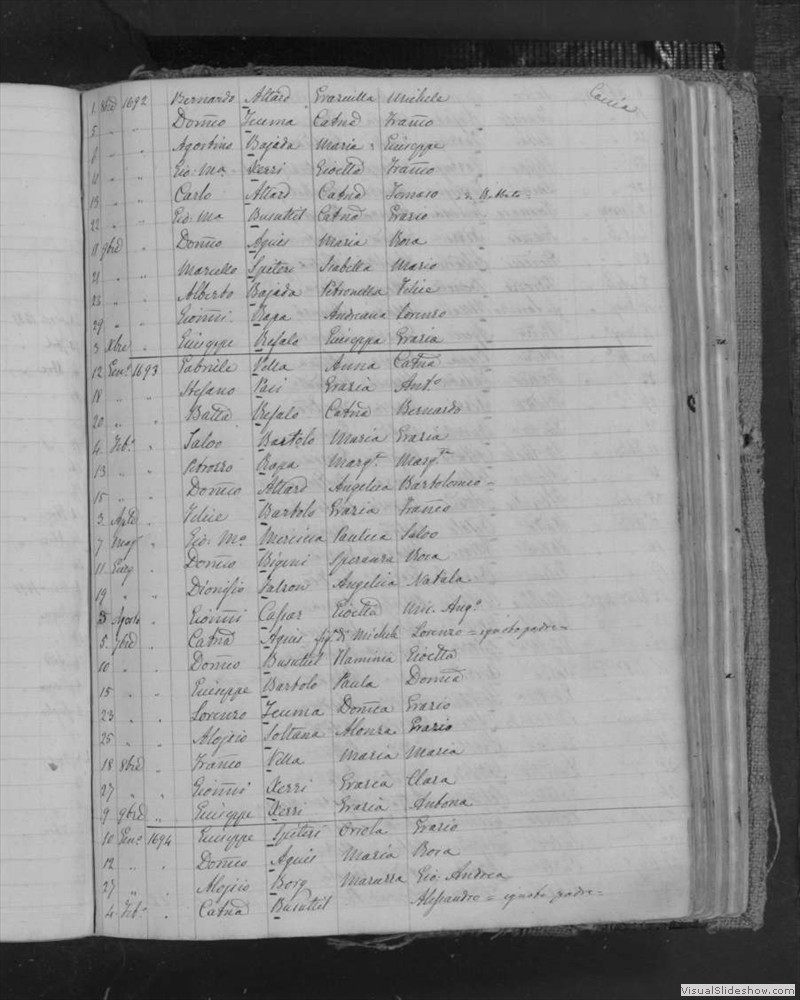 Caccia
1 8bre 1692 Bernardo Attard Grazulla Michele
5 " " Domco Zeuma Catna Franco
8 " " Agostino Bajada Maria Giuseppe
11 " " Gio: Ma Xerri Gioetta Franco
15 " " Carlo Attard Catna Tomaso
22 " " Gio: Ma Busuttil Catna Grazio
11 9bre " Domco Agius Maria Rosa
21 " " Marcello Spiteri Isabella Mario
23 " " Alberto Bajada Petronella Felice
29 " " Gionni Rapa Andreana Lorenzo
3 Xbre " Giuseppe Refalo Giuseppa Grazia
12 Genn. 1693 Gabriele Vella Anna Catna
18 " " Stefano Paci Grazia Anto
20 " " Batta Refalo Catna Bernardo
4 Feb. " Salvo Bartolo Maria Grazia
13 " " Rapa Margta Margta
15 " " Domco Attard Angelica Bartolomeo
3 Aple " Felice Bartolo Grazia Franco
7 Mag " Gio: Ma Mercieca Paulica Salvo
11 Giug " Domco Bigeni Speranza Rosa
19 " " Dionisio Falzon Angelica Natala
3 Agosto " Gionni Caspar Gioetta Mic. Ango
5 7bre " Catna Agius fig. di Michele Lorenzo = ignoto padre =
10 " " Domco Busuttil Flaminia Gioetta
15 " " Giuseppe Bartolo Paula Domca
23 " " Lorenzo Zeuma Domca Grazio
25 " " Alojsio Soltana Alonza Grazio
18 8bre " Franco Vella Maria Maria
27 " " Gionni Xerri Grazia Clara
9 9bre " Giuseppe Xerri Grazia Antona
10 Genn. 1694 Giuseppe Spiteri Oriola Grazio
12 " " Domco Agius Maria Rosa
27 " " Alojsio Borg Maruzza Gio: Andrea
4 Feb. " Catna Busuttil Alessandro = ignoto padre =
VisualSlideshow.com